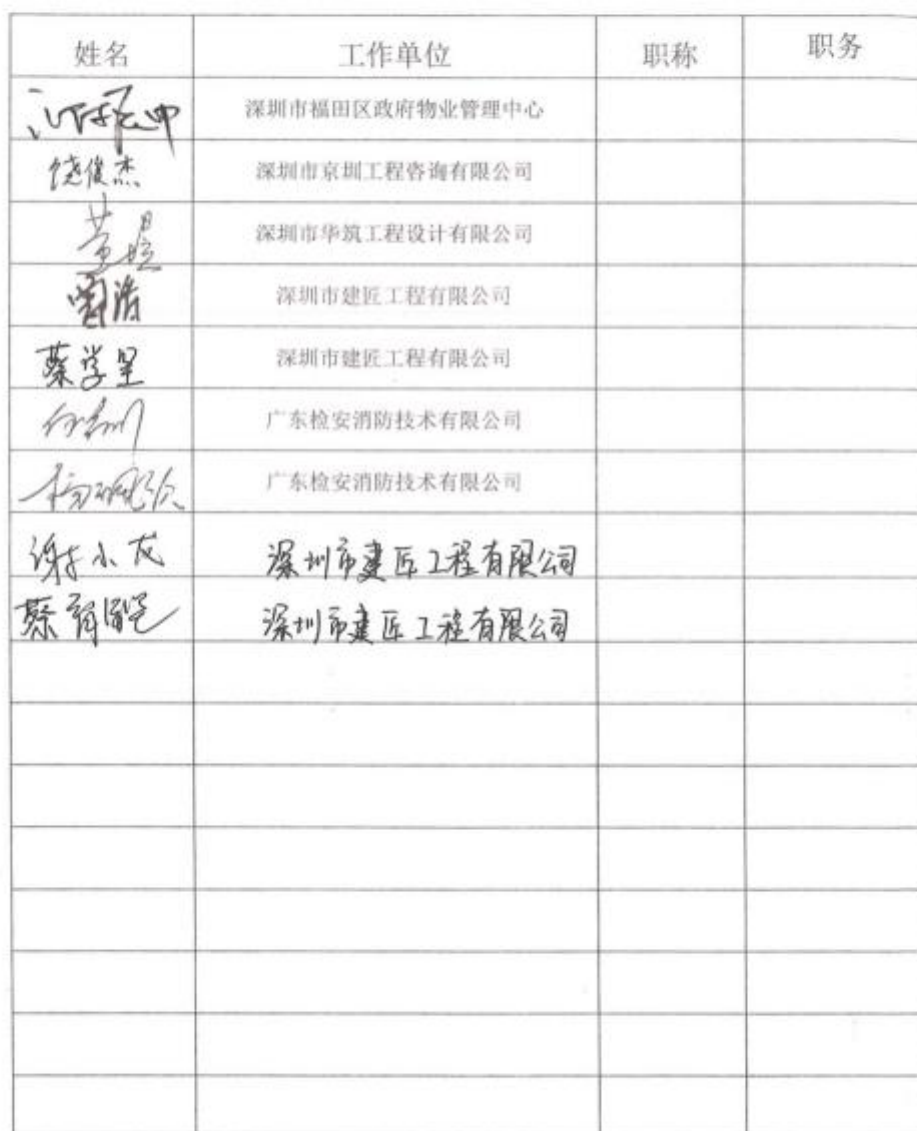 姓名 工作单位 职称 职务
深圳市福田区政府物业管理中心
饶俊杰 深圳市京圳工程咨询有限公司
深圳市华筑工程设计有限公司
深圳市建匠工程有限公司
蔡学呈 深圳市建匠工程有限公司
广东检安消防技术有限公司
广东检安消防技术有限公司
谢小龙 深圳市建匠工程有限公司
蔡 深圳市建匠工程有限公司